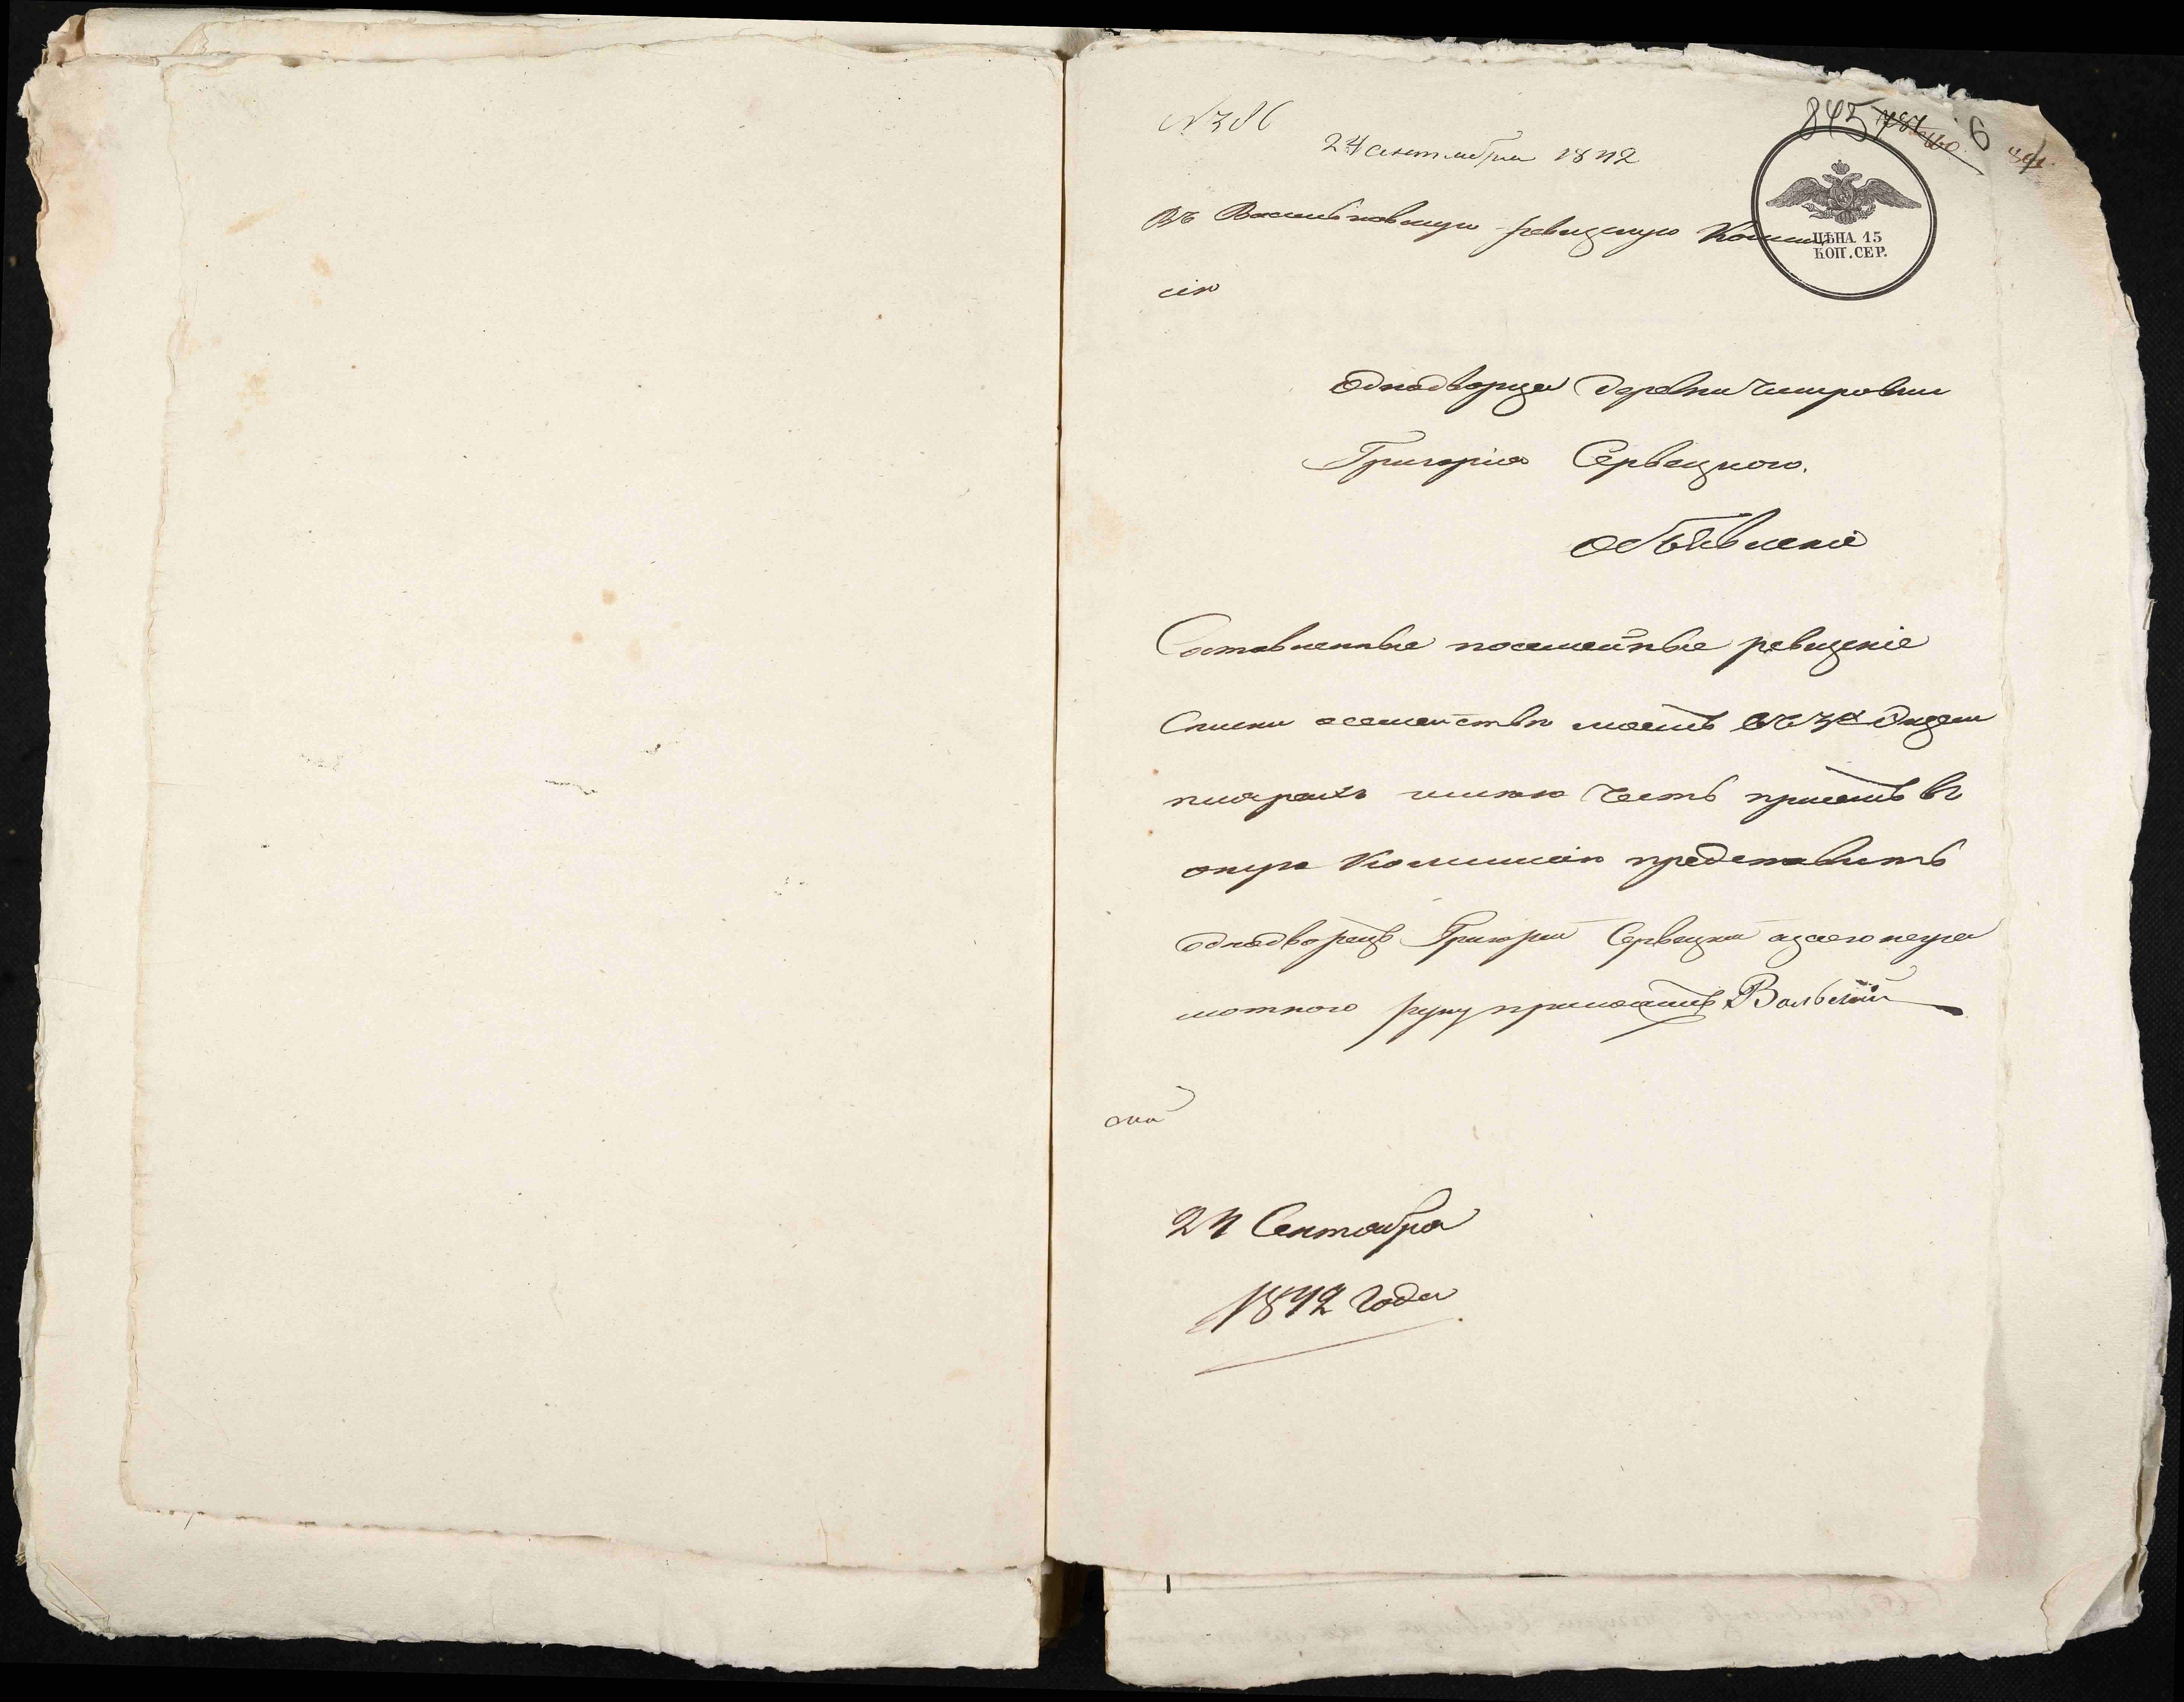 N 386
845 6
24 сентября 1842
ЦѢНА 15
КОП. СЕР.
Въ Васильковскую ревизскую Коммис
сію
Однодворца деревни
Григорія Сервецкого.
Объявленіе
Составленные посемейные ревизскіе
Списки о семействѣ моемъ въ 3х Экзем
плярахъ имѣю честь при семъ въ
оную Коммисію представить
однодворецъ Григорій Сервецкій а за его негра
мотного руку приложилъ Вольскій
24 Сентября
1842 года